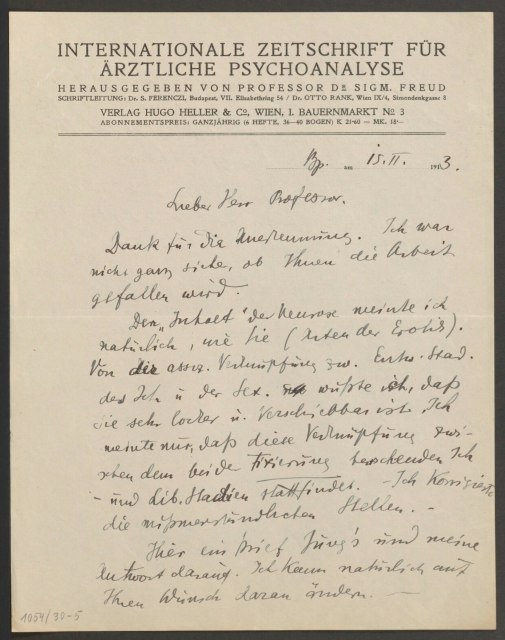 INTERNATIONALE ZEITSCHRIFT FÜR
ÄRZTLICHE PSYCHOANALYSE
HERAUSGEGEBEN VON PROFESSOR DR SIGM. FREUD
SCHRIFTLEITUNG: Dr. S. FERENCZI, Budapest, VII. Elisabethring 54 / Dr. OTTO RANK, Wien IX/4, Simondenkgasse 8
VERLAG HUGO HELLER & Co, WIEN, I. BAUERNMARKT No 3
ABONNEMENTSPREIS: GANZJÄHRIG (6 HEFTE, 36—40 BOGEN) K 21·60 = MK. 18·—
Bp. am 15. II. 1913.
Lieber Herr Professor.
Dank für die Anerkennung. Ich war
nicht ganz sicher, ob Ihnen die Arbeit
gefallen wird.
Den „Inhalt" der Neurose meinte ich
natürlich, wie Sie (Arten der Erotik).
Von der assoz. Verknüpfung zw. Entw. Stad.
des Ich u der Sex. wußte ich, daß
sie sehr locker u. verschiebbar ist. Ich
meinte nur, daß diese Verknüpfung zwi-
schen dem beide Fixierung Ich
- und Lib. Stadien stattfindet. - Ich korrigierte
die mißverständlichen Stellen. -
Hier ein Brief Jung's und meine
Antwort darauf. Ich kann natürlich auf
Ihren Wunsch daran ändern. -
1054/30-5